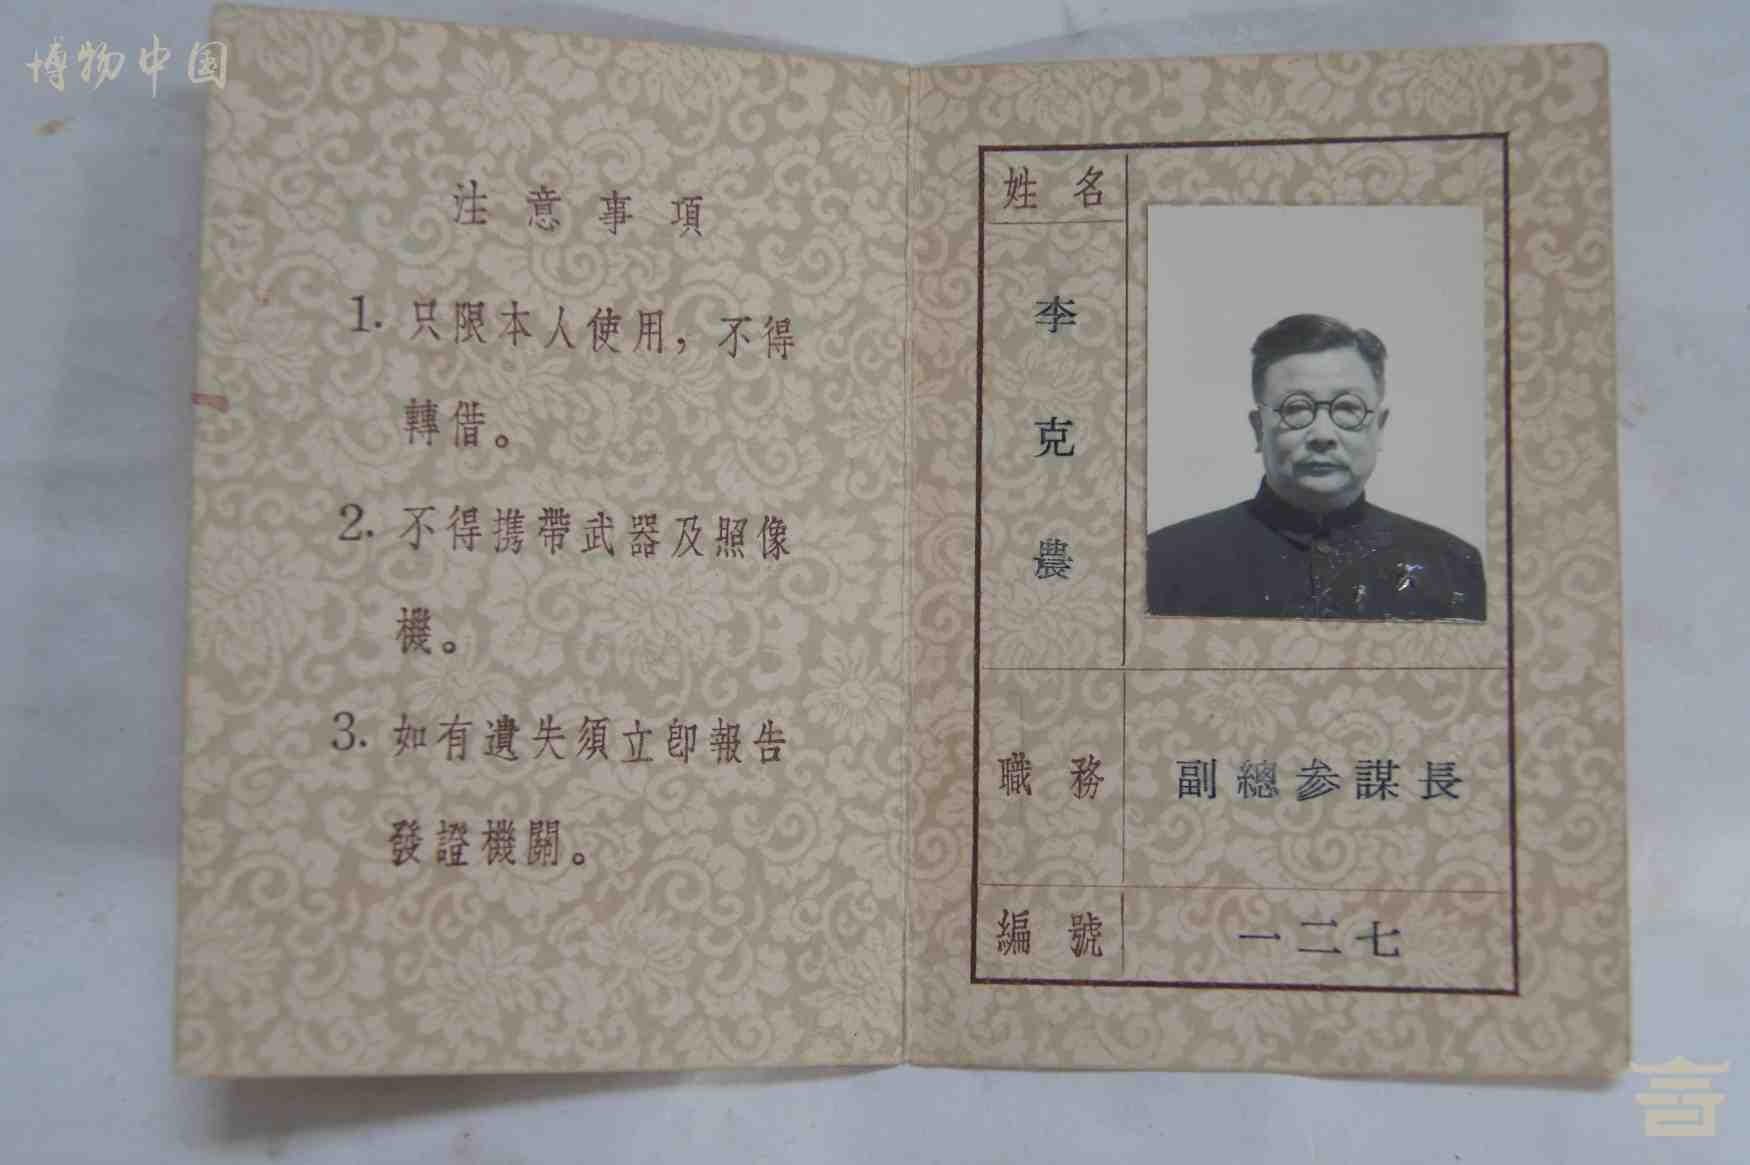 博物中国
注意事項
1. 只限本人使用，不得
轉借。
2. 不得携帶武器及照像
機。
3. 如有遺失須立即報告
發證機關。
姓名
李克農
職務
副總参謀長
編號
一二七